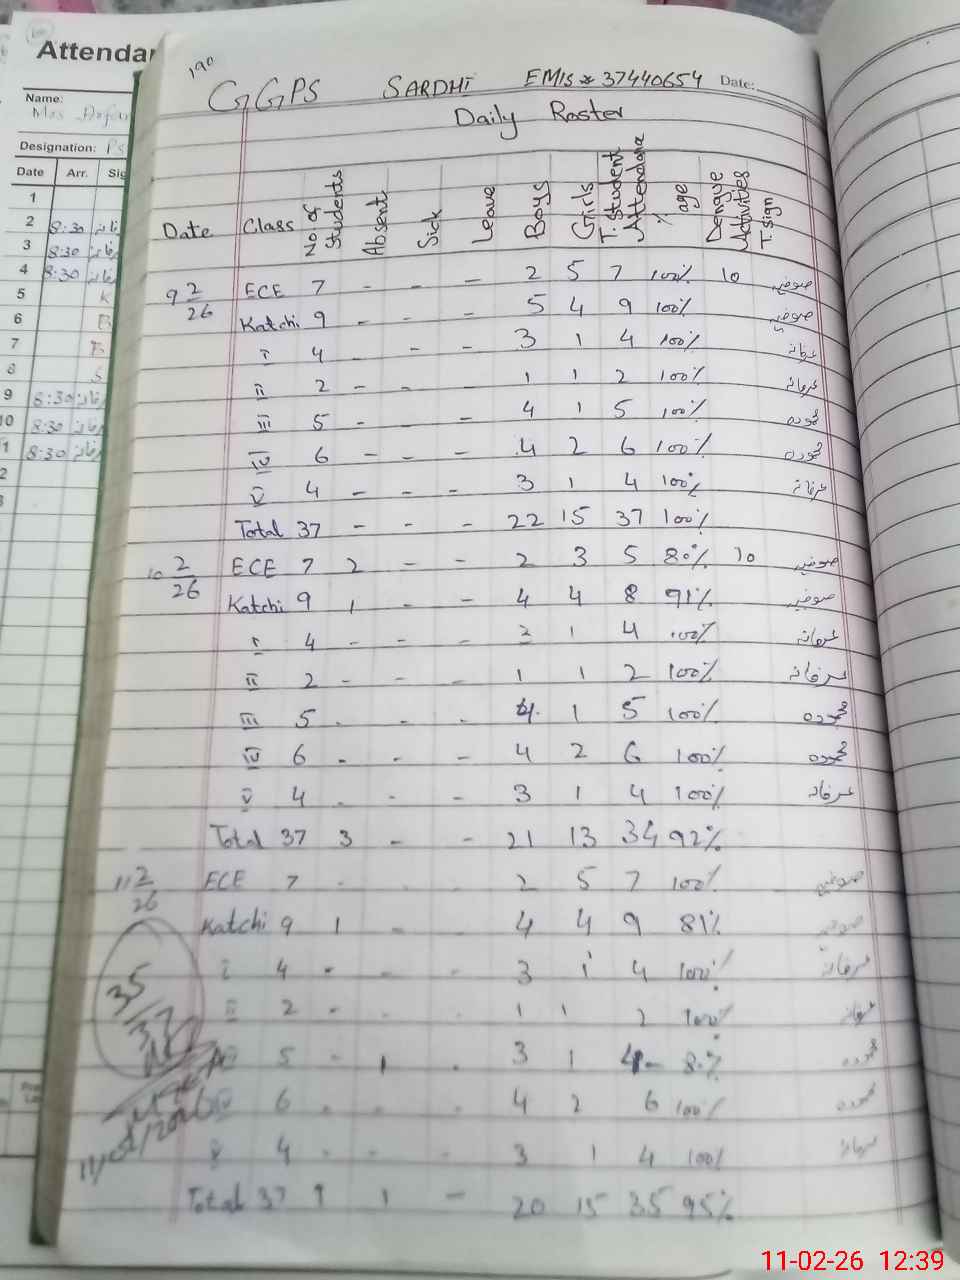 190
GGPS SARDHI EMIS * 37440654 Date:
Daily Roster
Date Class No of Students Absent Sick Leave Boys Girls T. Student Attendance % age Dengue Activities T. sign
9 2/26 ECE 7 - - - 2 5 7 100% 10 صوفیہ
Katchi 9 - - - 5 4 9 100% صوفیہ
I 4 - - - 3 1 4 100% عرفانہ
II 2 - - - 1 1 2 100% عرفانہ
III 5 - - - 4 1 5 100%
IV 6 - - - 4 2 6 100%
V 4 - - - 3 1 4 100% عرفانہ
Total 37 - - - 22 15 37 100%
10 2/26 ECE 7 2 - - 2 3 5 80% 10 صوفیہ
Katchi 9 1 - - 4 4 8 91% صوفیہ
I 4 - - - 1 4 100% عرفانہ
II 2 - - - 1 1 2 100% عرفانہ
III 5 - - - 4 1 5 100%
IV 6 - - - 4 2 6 100%
V 4 - - - 3 1 4 100% عرفانہ
Total 37 3 - - 21 13 34 92%
11 2/26 ECE 7 - - - 2 5 7 100% صوفیہ
Katchi 9 1 - - 4 4 9 81% صوفیہ
I 4 - - - 3 1 4 100% عرفانہ
II 2 - - - 1 1 2 100% عرفانہ
5 - 1 - 3 1 4 - 80%
IV 6 - - - 4 2 6 100%
V 4 - - - 3 1 4 100% عرفانہ
Total 37 1 1 - 20 15 35 95%
35/37
Attendan
Name:
Mrs
Designation: PS
Date Arr. Sig
1
2 8:30
3 8:30
4 8:30
5
6 B
7
8 S
9 8:30
10 8:30
1 8:30
2
11-02-26 12:39